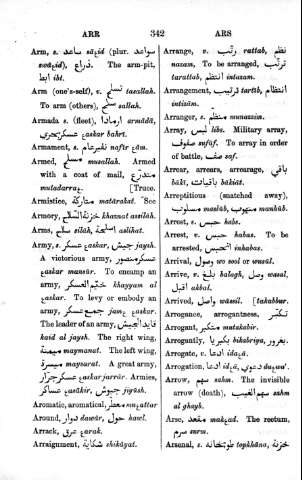 ARR 342 ARS
Arm, s. ساعد sāɛid (plur. سواعد
sawāɛid), ذراع. The arm-pit,
ابط ibt.
Arm (one's-self), v. تسلح tasallah.
To arm (others), سلح sallah.
Armada s. (fleet), ارمادا armāda,
عسكر بحري ɛaskar bahri.
Armament, s. نفير عام nafīr ɛām.
Armed, مسلح musallah. Armed
with a coat of mail, متدرع
mutadarraɛ. [Truce.
Armistice, متاركة matārakat. See
Armory, خزنة السلاح khaznat assilāh.
Arms, سلاح silāh, اسلحة aslihat.
Army, s. عسكر ɛaskar, جيش jaysh.
A victorious army, عسكر منصور
ɛaskar mansūr. To encamp an
army, خيم العسكر khayyam al
ɛaskar. To levy or embody an
army, جمع عسكر jamaɛ ɛaskar.
The leader of an army, قايد الجيش
kaid al jaysh. The right wing,
ميمنة maymanat. The left wing,
ميسرة maysarat. A great army,
عسكر جرار ɛaskar jarrār. Armies,
عساكر ɛasākir, جيوش jiyūsh.
Aromatic, aromatical, معطر muɛattar
Around, دوار dawār, حول hawl.
Arrack, عرق ɛarak.
Arraignment, شكاية shikāyat.
Arrange, v. رتب rattab, نظم
nazam. To be arranged, ترتب
tarattab, انتظم intazam.
Arrangement, ترتيب tartīb, انتظام
intisām.
Arranger, s. منظم munassim.
Array, لبس libs. Military array,
صفوف sufūf. To array in order
of battle, صف saf.
Arrear, arrears, arrearage, باقي
bāki, باقيات bākiāt.
Arreptitious (matched away),
مسلوب maslūb, منهوب manhūb.
Arrest, s. حبس habs.
Arrest, v. حبس habas. To be
arrested, انحبس inhabas.
Arrival, وصول wo sool or wusūl.
Arrive, v. بلغ balagh, وصل wasal,
اقبل akbal.
Arrived, واصل wāssil. [takabbur.
Arrogance, arrogantness, تكبر
Arrogant, متكبر mutakabir.
Arrogantly, بكبريا bikabriya, بغرور.
Arrogate, v. ادعا idaɛā.
Arrogation, ادعا idɛā, دعوي daɛwa'.
Arrow, سهم sahm. The invisible
arrow (death), سهم الغيب sahm
al ghayb.
Arse, مقعد makɛad. The rectum,
سرم surm.
Arsenal, s. طوبخانه topkhāna, خزنة